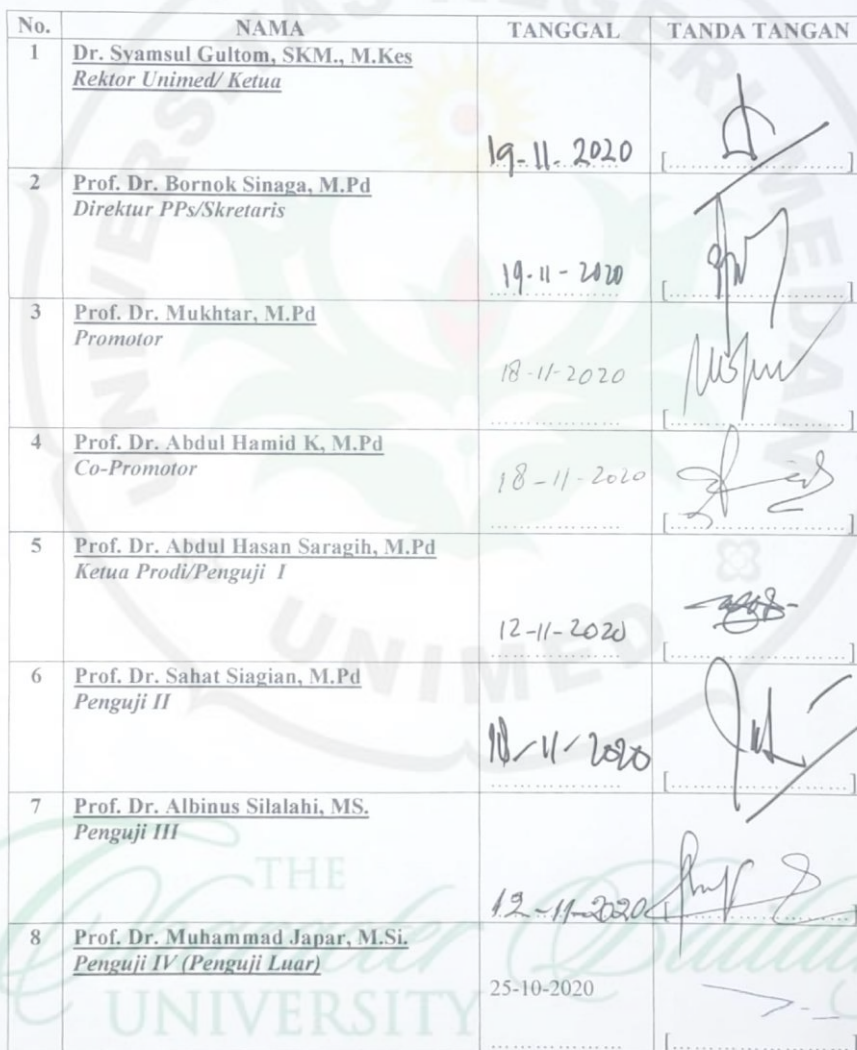 No. NAMA TANGGAL TANDA TANGAN
1 Dr. Syamsul Gultom, SKM., M.Kes
Rektor Unimed/ Ketua
19-11-2020 [....................]
2 Prof. Dr. Bornok Sinaga, M.Pd
Direktur PPs/Skretaris
19-11-2020 [....................]
3 Prof. Dr. Mukhtar, M.Pd
Promotor
18-11-2020
[....................]
4 Prof. Dr. Abdul Hamid K, M.Pd
Co-Promotor
18-11-2020
[....................]
5 Prof. Dr. Abdul Hasan Saragih, M.Pd
Ketua Prodi/Penguji I
12-11-2020
[....................]
6 Prof. Dr. Sahat Siagian, M.Pd
Penguji II
18-11-2020
[....................]
7 Prof. Dr. Albinus Silalahi, MS.
Penguji III
12-11-2020 [....................]
8 Prof. Dr. Muhammad Japar, M.Si.
Penguji IV (Penguji Luar)
25-10-2020
[....................]
UNIVERSITAS NEGERI MEDAN
UNIMED
THE
Character Building
UNIVERSITY